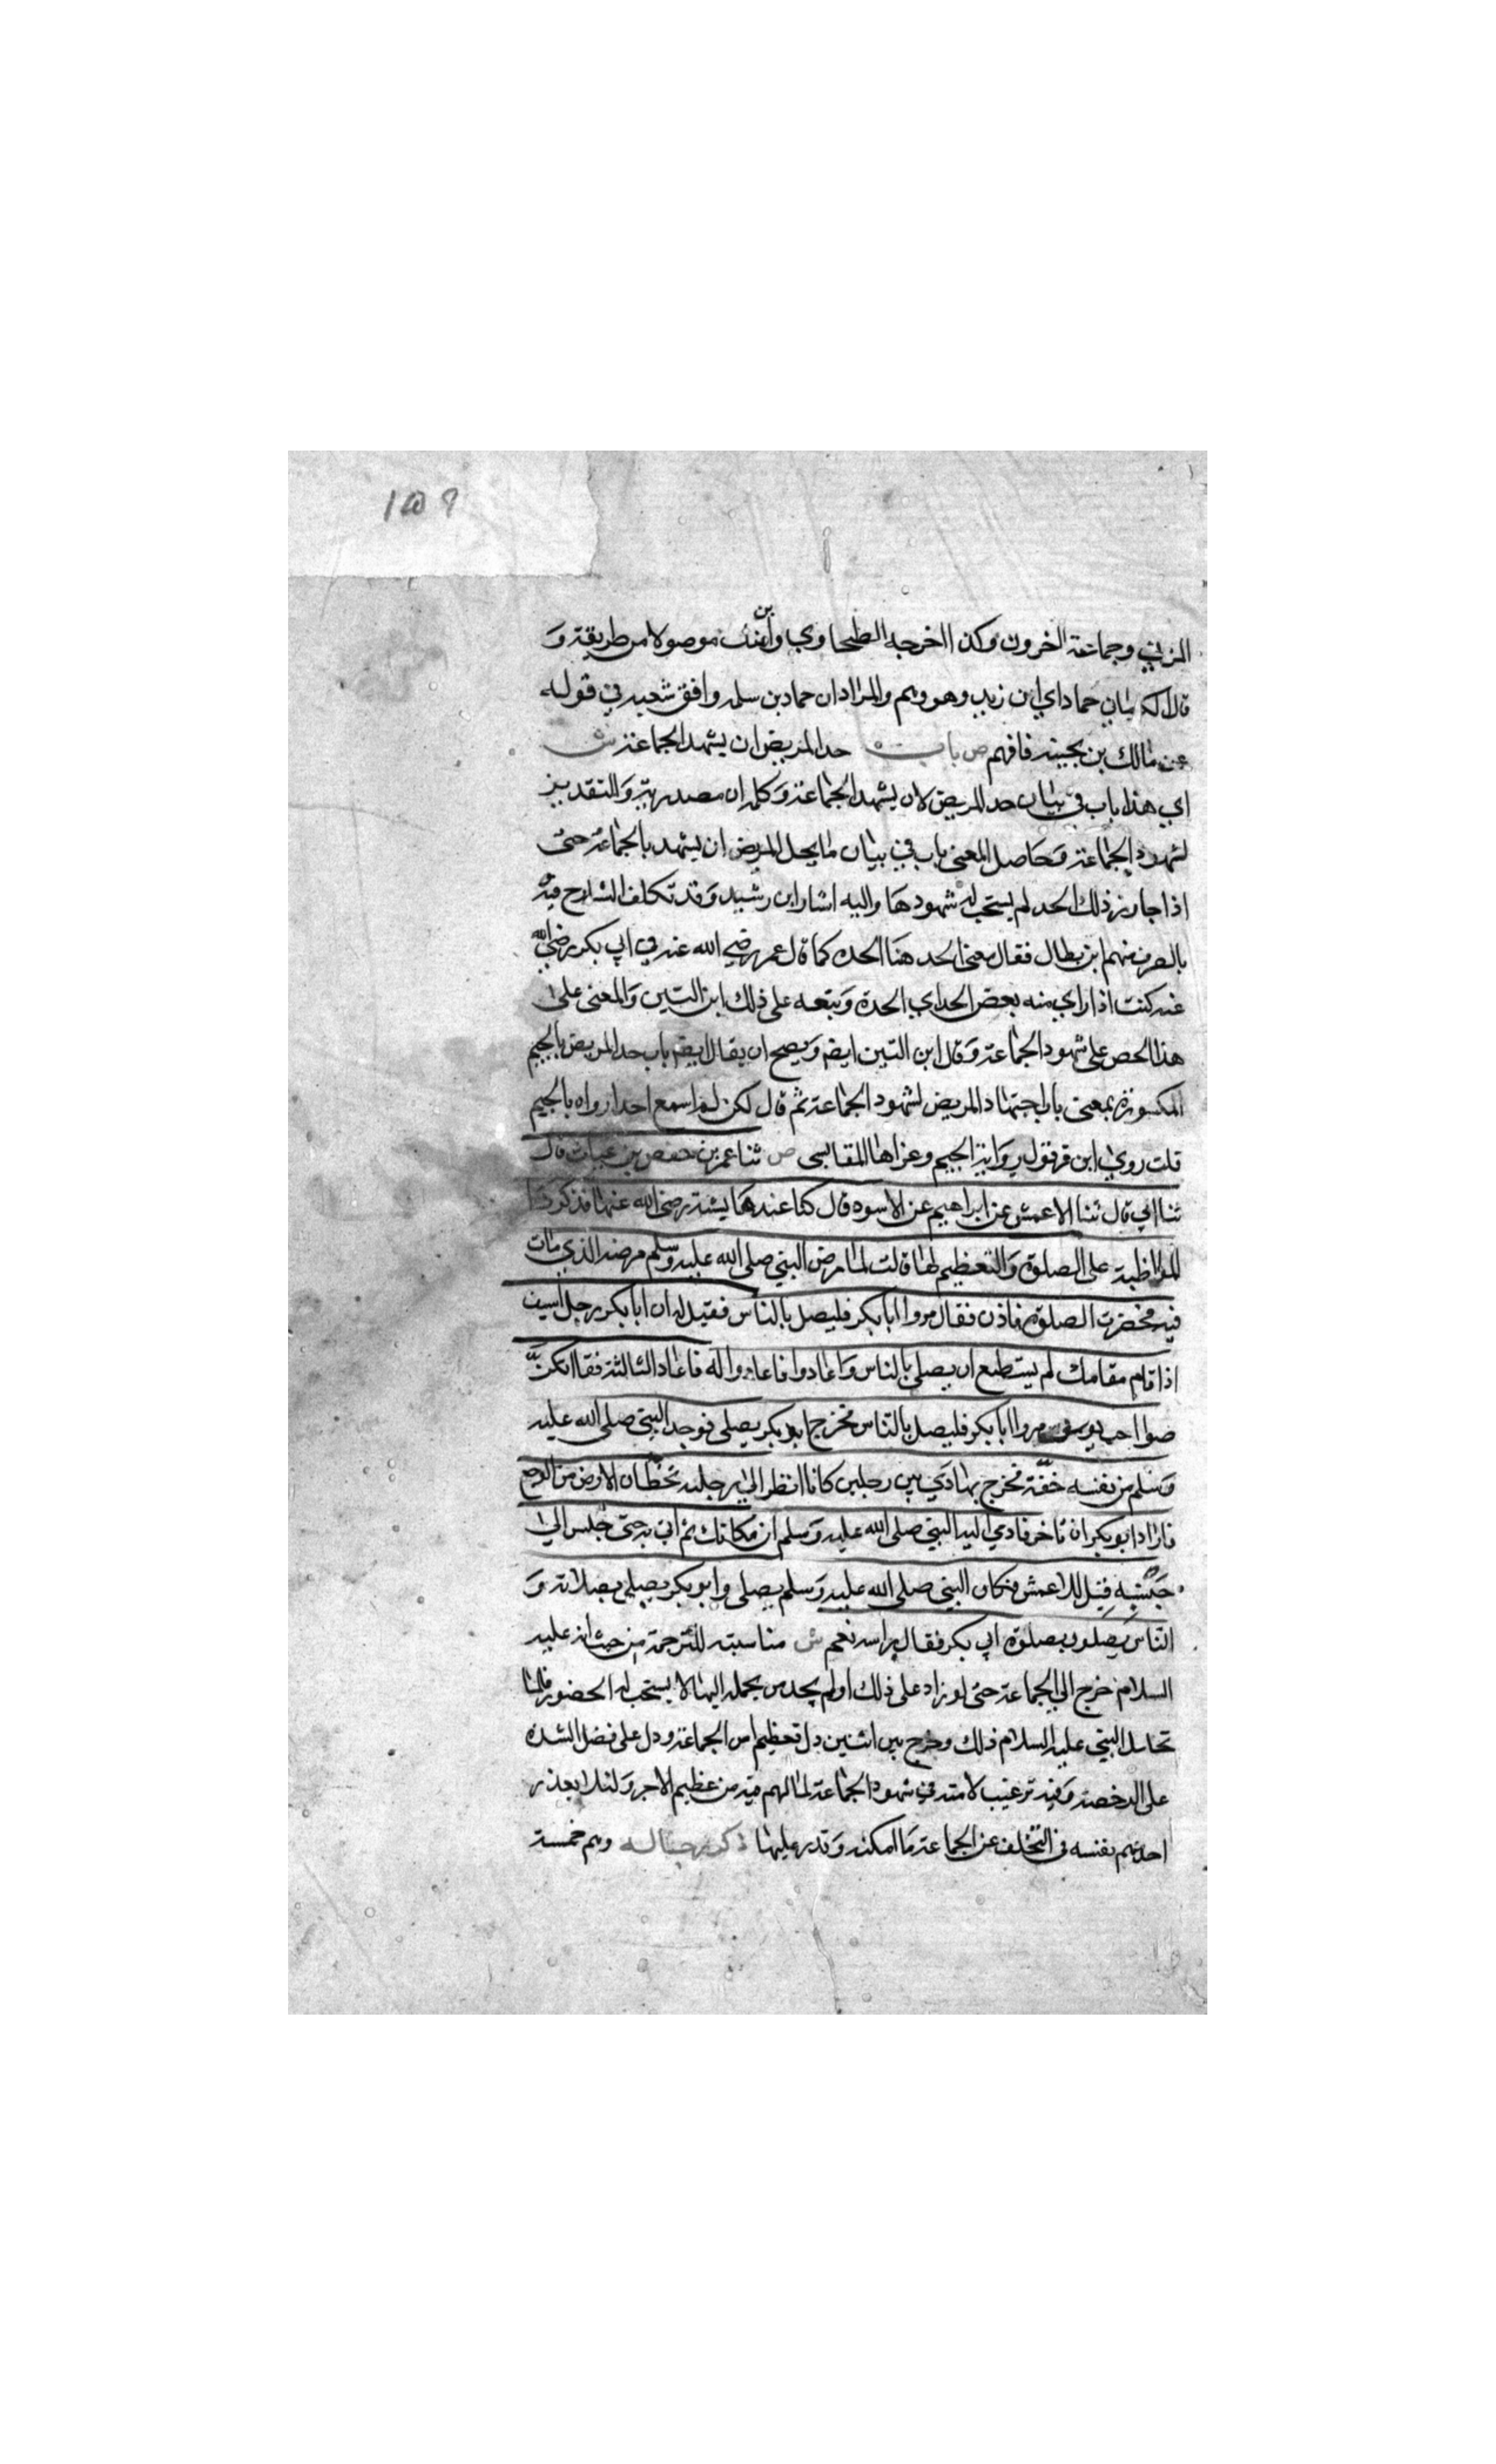 ١٥٩
المزني وجماعة اخرون وكذا اخرجه الطحاوي وابن مندة موصولا من طريقة وَ
قال الكرماني حماد اي ابن زيد وهو وهم والمراد ان حماد بن سلمه وافق شعبه في قوله
عن مالك بن بحينه فافهم ص باب حد المريض ان يشهد الجماعة ش
اي هذا باب في بيان حد المريض لان يشهد الجماعة وكلمه ان مصدرية وَالتقدير
لشهود الجماعة وَحاصل المعنى باب في بيان ما يحد للمريض ان يشهد بالجماعة حتى
اذا جاوز ذلك الحد لم يستحب له شهودها واليه اشار ابن رشيد وَقد تكلف الشارح فيه
بالصرف منهم ابن بطال فقال معنى الحد هنا الحده كما قال عمر رضي الله عنه في ابي بكر رضي الله
عنه كنت اذا راي منه بعض الحد اي الحدة وَتبعه على ذلك ابن التين وَالمعنى على
هذا الحض على شهود الجماعة وَقال ابن التين ايضا وَيصح ان يقال ايضا باب حد المريض بالجيم
المكسورة بمعنى باب اجتهاد المريض لشهود الجماعة ثم قال لكن لم اسمع احدا رواه بالجيم
قلت روى ابن قرقول رواية الجيم وعزاها للقابسي ص ثنا عمر بن حفص بن غياث قال
ثنا ابي قال ثنا الاعمش عن ابراهيم عن الاسود قال كنا عند عايشة رضي الله عنها فذكرنا
المواظبة على الصلوة وَالتعظيم لها قالت لما مرض النبي صلى الله عليه وسلم مرضه الذي مات
فيه فحضرت الصلوة فاذن فقال مروا ابا بكر فليصل بالناس فقيل له ان ابا بكر رجل اسيف
اذا قام مقامك لم يستطع ان يصلي بالناس وَاعادوا فاعادوا له فاعاد الثالثة فقال انكن
صواحب يوسف مروا ابا بكر فليصل بالناس فخرج ابو بكر يصلى فوجد النبي صلى الله عليه
وَسلم من نفسه خفة فخرج يهادي بين رجلين كانا انظر الى رجليه تخطان الارض من الوجع
فاراد ابو بكر ان تاخر فادمي اليه النبي صلى الله عليه وَسلم ان مكانك ثم اتى به حتى جلس الى
جنبه قيل للاعمش فكان النبي صلى الله عليه وَسلم يصلى وابو بكر يصلي بصلاته وَ
الناس يَصلون بصلوة ابي بكر فقال براسه نعم ش مناسبته للترجمة من حيث انه عليه
السلام خرج الي الجماعة حتى لو زاد على ذلك اولم يجد من يحمله اليها لا يستحب له الحضور فلما
تحامل النبي عليه السلام ذلك وخرج بين اثنين دل تعظيم امر الجماعة ودل على فضل الشدة
على الرخصة وَفيه ترغيب لامته في شهود الجماعة لما لهم فيه من عظيم الاجر وَلئلا يعذر
احدهم نفسه في التخلف عن الجماعة مَا امكنه وَقدر عليها ذكر رجاله وهم خمسة